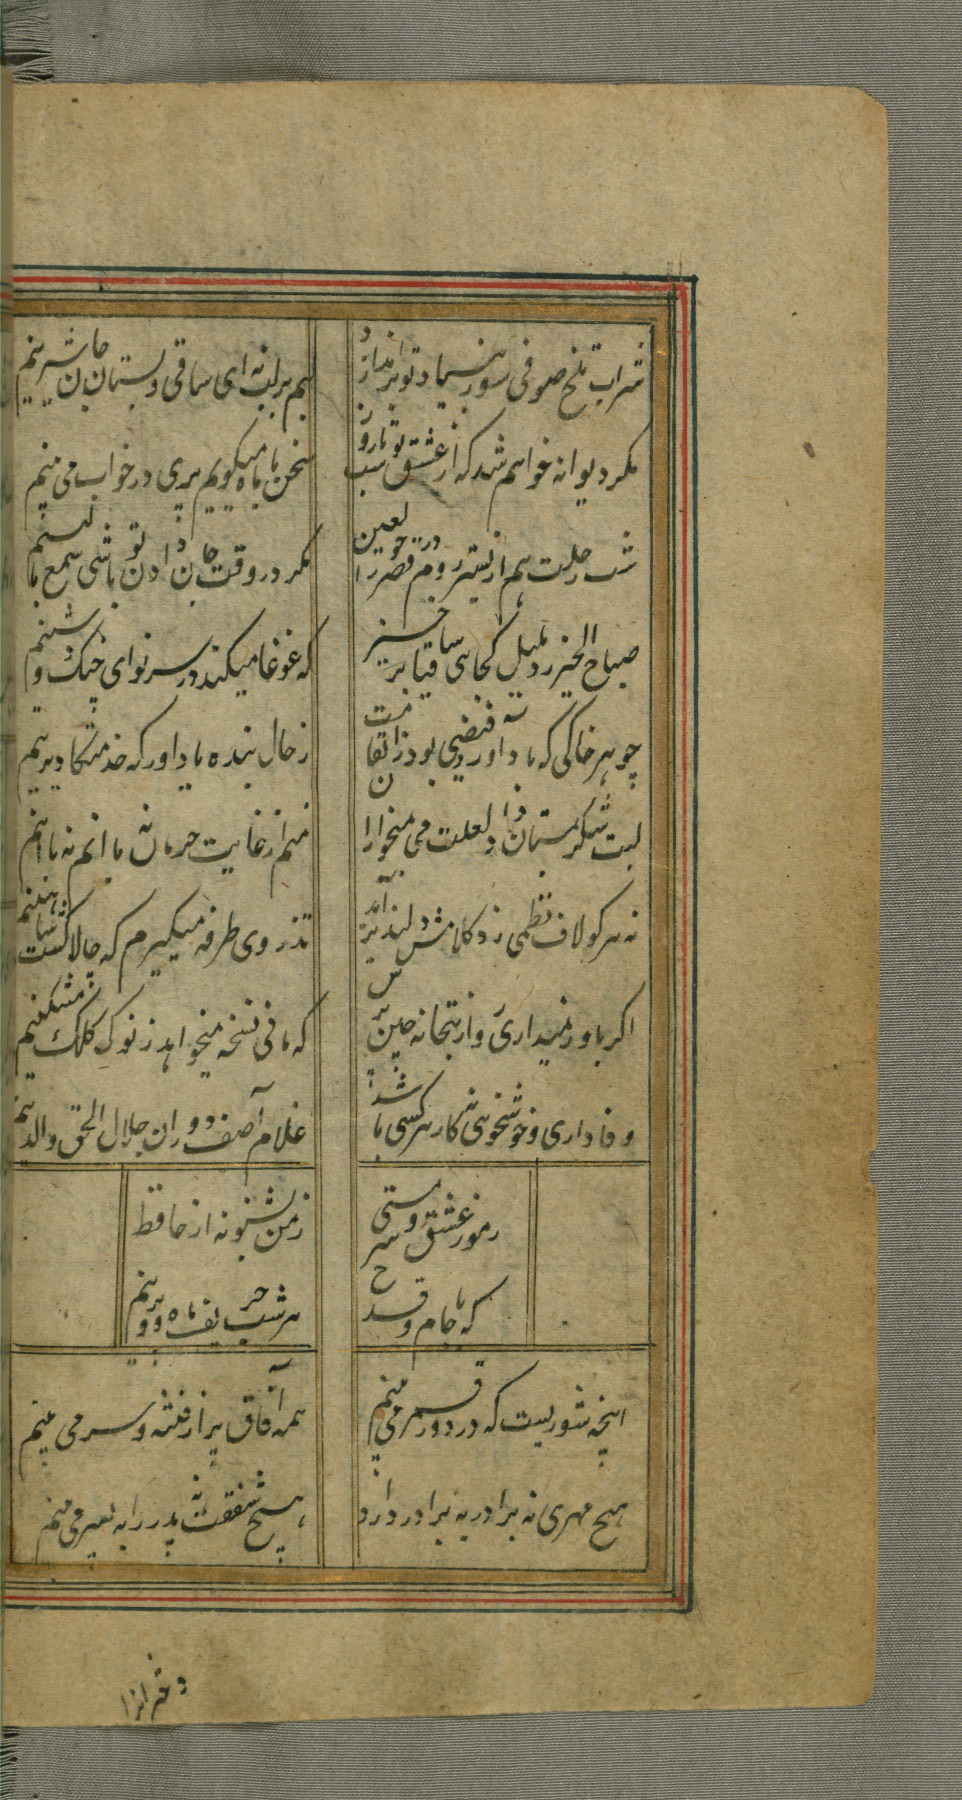 شراب تلخ صوفی سوز بنیادم تو بر انداز
لبم بر لب نه ای ساقی و بستان جان شیرینم
مکر دیوانه خواهم شد که از عشق تو شب تا روز
سخن با ماه میکویم پری در خواب می بینم
شب رحلت هم از بستر روم در قصر حور العین
مکر در وقت جان دادن تو باشی شمع بالینم
صباح الخیر زد بلبل کجایی ساقیا برخیز
که غوغا میکند در سر نوای چنک
چو هر خاکی که باد آورد فیضی بود ز انعامت
ز حال بنده یاد آور که خدمتکار دیرینم
لبت شکر بمستان داد و لعلت می بمیخوارا
منم از غایت حرمان نه با آنم نه با اینم
نه هر کو لاف نظمی زد کلامش دلپذیر آمد
تذروی طرفه میکیرم که چالاکست شاهینم
اکر باور نمیداری رو از بتخانه چین پرس
که مانی نسخه میخواهد ز نوک کلک مشکینم
وفاداری و خوشخویی نه کار هر کسی باشد
غلام آصف دوران جلال الحق والدینم
رموز عشق و سر مستی
ز من بشنو نه از حافظ
که با جام و قدح
هر شب حریف ماه و پروینم
اینچه شوریست که در دور قمر می بینم
همه آفاق پر از فتنه و شر می بینم
هیچ مهری نه برادر به برادر دارد
هیچ شفقت نه پدر را به پسر می بینم
دختر انرا